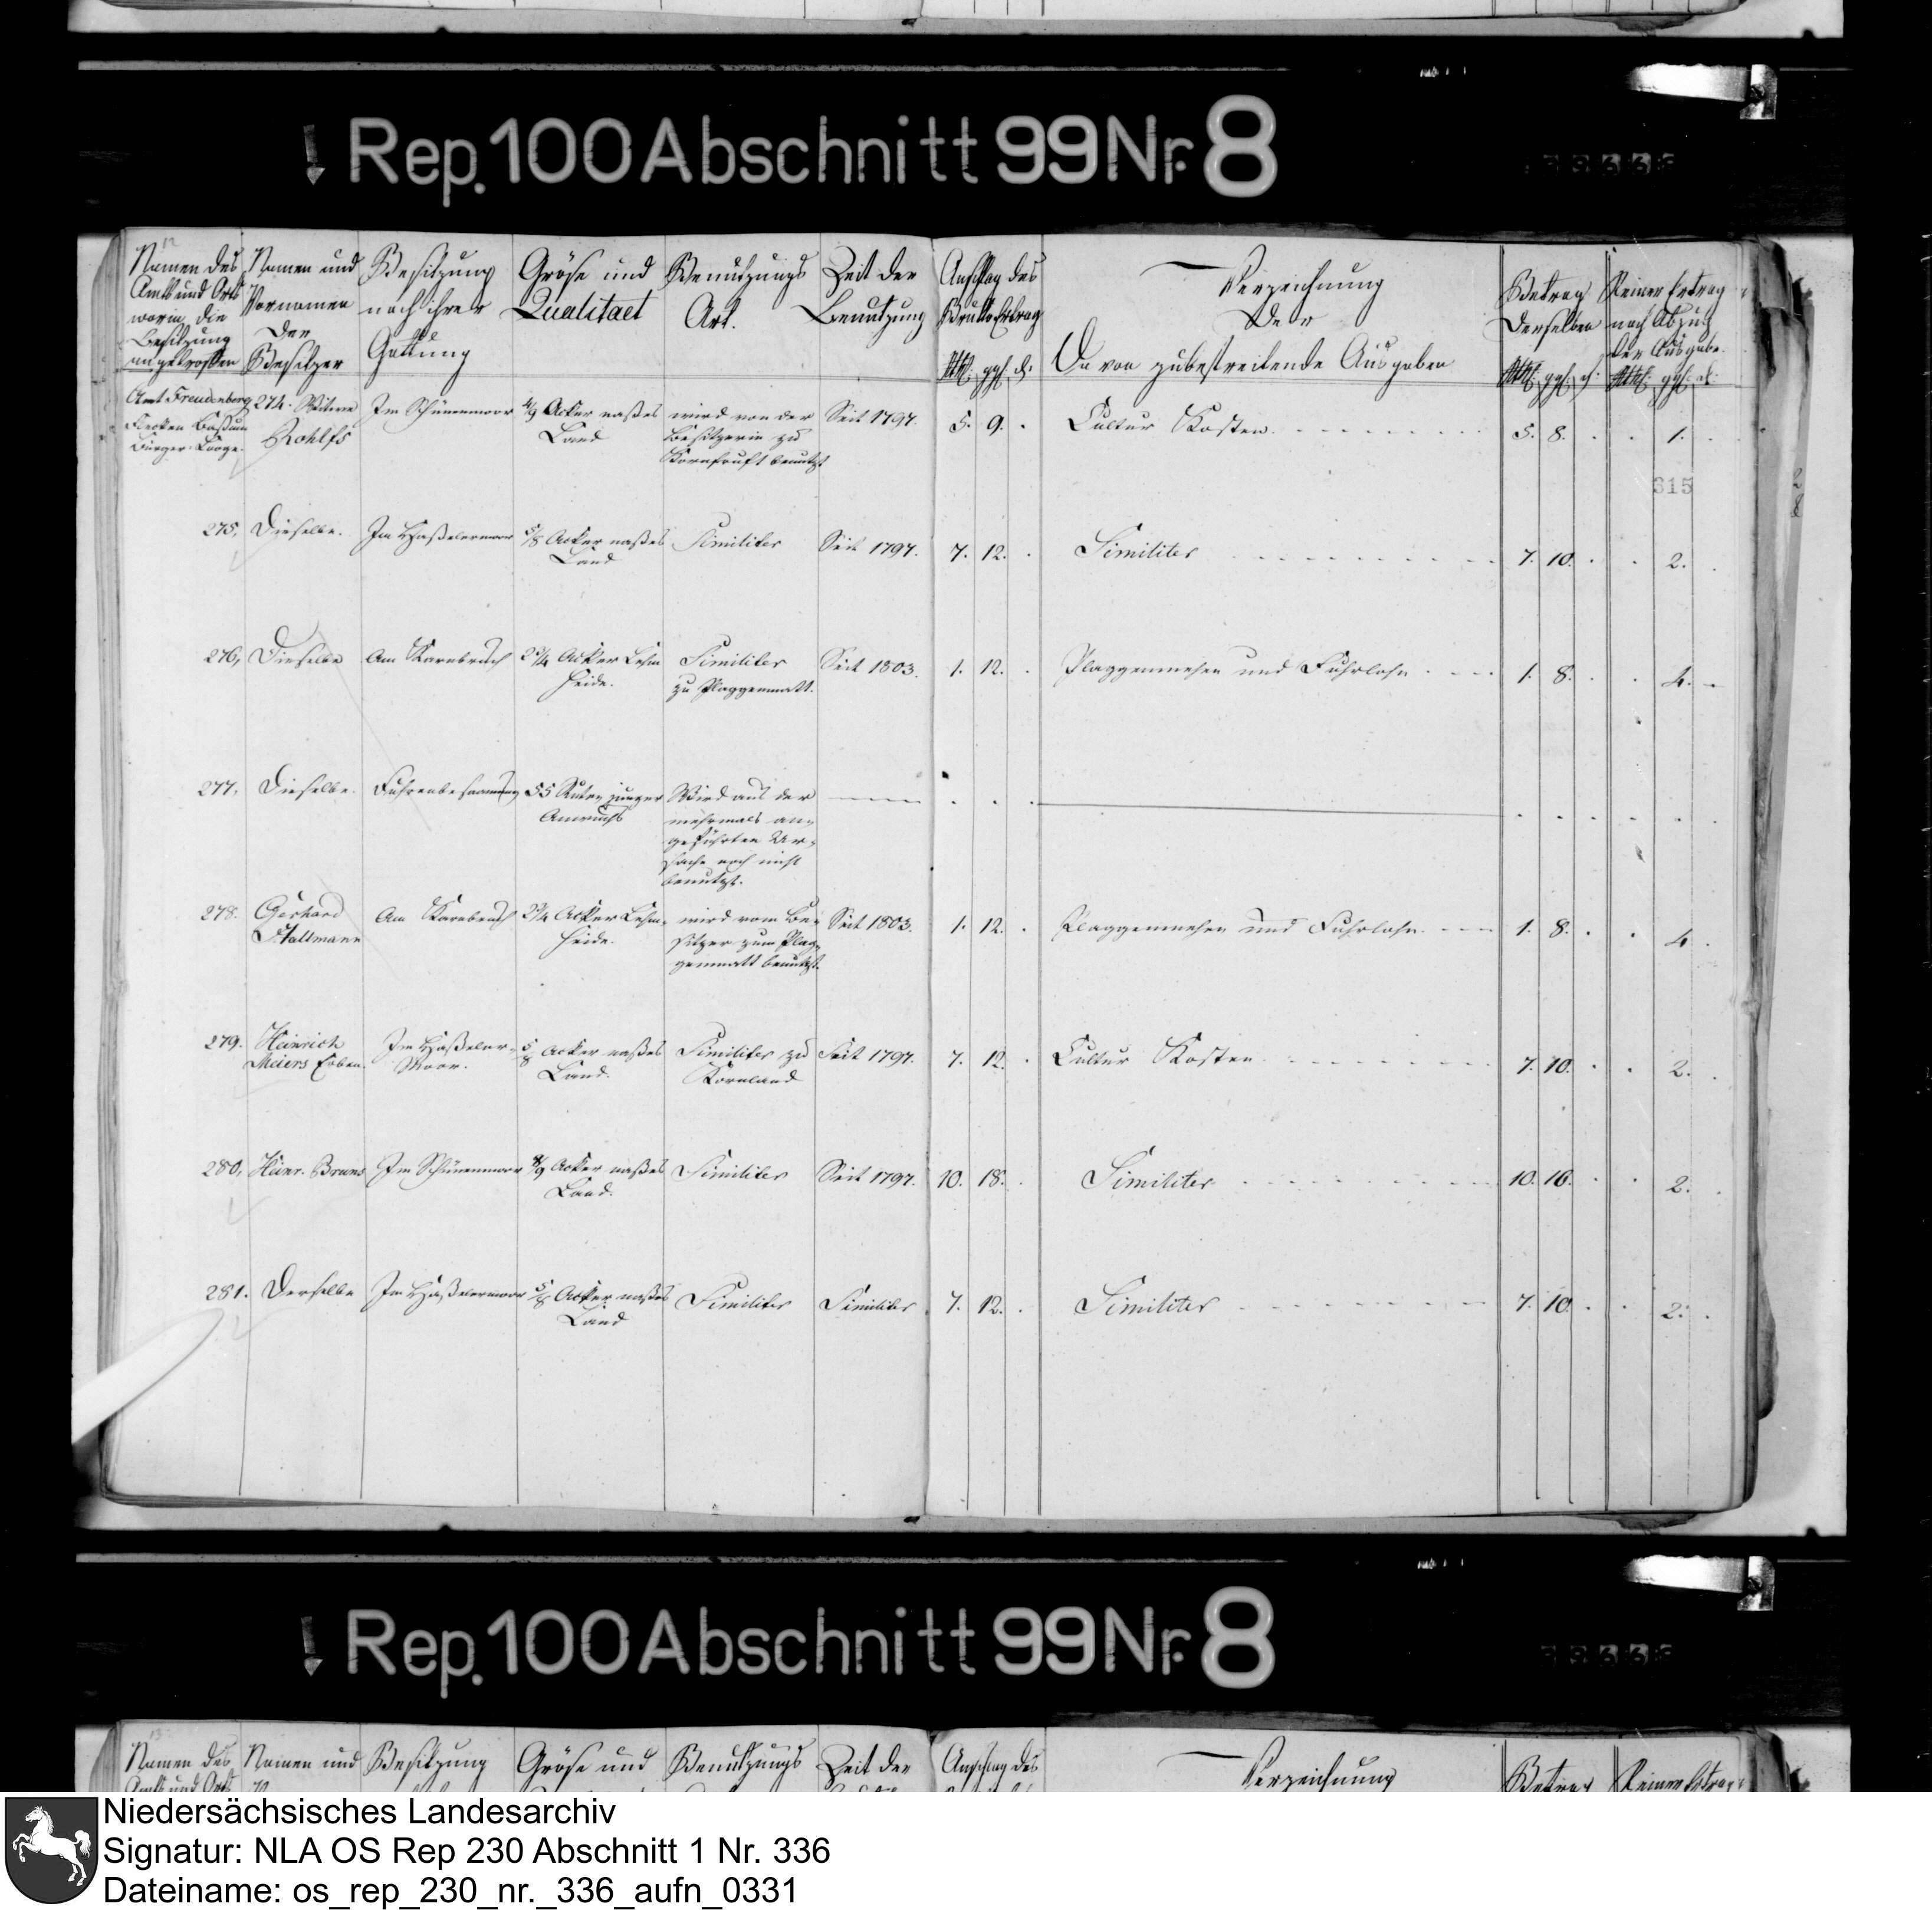 Rep. 100 Abschnitt 99 Nr. 8
12
Namen des Amts und Orts worin die Besitzung angetroffen
Namen und Vornamen der Besitzer
Besitzung nach ihrer Gattung
Gröse und Qualitaet
Benutzungs Art.
Zeit der Benutzung
Anschlag des Brutto Ertrag
Rthl: ggl. d:
Verzeichnung der
Davon zubestreitende Ausgaben
Betrag derselben
Rthl: ggl: d:
Reiner Ertrag nach Abzug der Ausgabe.
Rthl: ggl: d:
Amt Freudenberg Flecken Bassum Bürger
274. Witwe Rohlfs
Im Schünenmoor
4/9 Acker naßes Land
wird von der Besitzerin zu Kornfruft benutzt
Seit 1797.
5. 9. .
Cultur Kosten.
5. 8. .
. 1. .
315
275. Dieselbe.
Im Haßelermoor
5/8 Acker naßes Land
Similiter
Seit 1797.
7. 12. .
Similiter
7. 10. .
. 2. .
276. Dieselbe
Am Karrbruch
2 3/4 Acker Lehm Heide.
Similiter zu Plaggenmatt.
Seit 1803.
1. 12. .
Plaggenmehen und Fuhrlohn
1. 8. .
. 4. -
277. Dieselbe.
Fuhrenbesaamung
55 Ruten junger Anwuchs
Wird aus der mehrmals angeführten Ursache noch nicht benutzt.
278. Gerhard Stallmann
Am Karrbruch
2 3/4 Acker Lehm Heide.
wird vom Besitzer zum Plaggenmatt benutzt.
Seit 1803.
1. 12. .
Plaggenmehen und Fuhrlohn.
1. 8. .
. 4. .
279. Heinrich Meiers Erben.
Im Haßeler Moor.
5/8 Acker naßes Land.
Similiter zu Kornland
Seit 1797.
7. 12. .
Cultur Kosten.
7. 10. .
. 2. .
280. Heinr. Bruns
Im Schünenmoor
8/9 Acker naßes Land.
Similiter
Seit 1797.
10. 18. .
Similiter
10. 16. .
. 2. .
281. Derselbe
Im Haßelermoor
5/8 Acker naßes Land
Similiter
Similiter
7. 12. .
Similiter
7. 10. .
. 2. .
Rep. 100 Abschnitt 99 Nr. 8
13
Namen des
Namen und
Besitzung
Gröse und
Benutzungs
Zeit der
Anschlag des
Verzeichnung
Betrag
Reiner Ertrag
Niedersächsisches Landesarchiv
Signatur: NLA OS Rep 230 Abschnitt 1 Nr. 336
Dateiname: os_rep_230_nr._336_aufn_0331